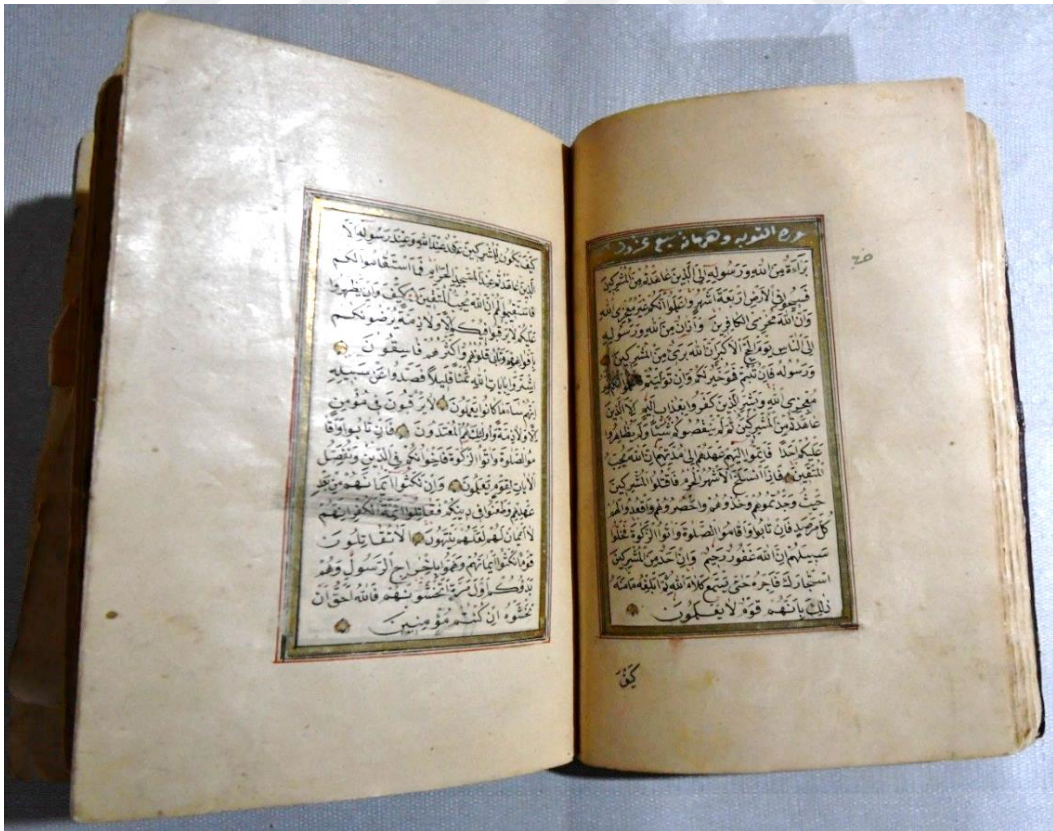 سورة التوبه وهى مائة
بَرَاءَةٌ مِنَ اللهِ وَرَسُولِهِ اِلَى الَّذِينَ عَاهَدْتُمْ مِنَ الْمُشْرِكِينَ
فَسِيحُوا فِى الْاَرْضِ اَرْبَعَةَ اَشْهُرٍ وَاعْلَمُوا اَنَّكُمْ غَيْرُ مُعْجِزِى اللهِ
وَاَنَّ اللهَ مُخْزِى الْكَافِرِينَ وَاَذَانٌ مِنَ اللهِ وَرَسُولِهِ
اِلَى النَّاسِ يَوْمَ الْحَجِّ الْاَكْبَرِ اَنَّ اللهَ بَرِىءٌ مِنَ الْمُشْرِكِينَ
وَرَسُولُهُ فَاِنْ تُبْتُمْ فَهُوَ خَيْرٌ لَكُمْ وَاِنْ تَوَلَّيْتُمْ
مُعْجِزِى اللهِ وَبَشِّرِ الَّذِينَ كَفَرُوا بِعَذَابٍ اَلِيمٍ اِلَّا الَّذِينَ
عَاهَدْتُمْ مِنَ الْمُشْرِكِينَ ثُمَّ لَمْ يَنْقُصُوكُمْ شَيْئًا وَلَمْ يُظَاهِرُوا
عَلَيْكُمْ اَحَدًا فَاَتِمُّوا اِلَيْهِمْ عَهْدَهُمْ اِلَى مُدَّتِهِمْ اِنَّ اللهَ يُحِبُّ
الْمُتَّقِينَ فَاِذَا انْسَلَخَ الْاَشْهُرُ الْحُرُمُ فَاقْتُلُوا الْمُشْرِكِينَ
حَيْثُ وَجَدْتُمُوهُمْ وَخُذُوهُمْ وَاحْصُرُوهُمْ وَاقْعُدُوا لَهُمْ
كُلَّ مَرْصَدٍ فَاِنْ تَابُوا وَاَقَامُوا الصَّلٰوةَ وَاٰتَوُا الزَّكٰوةَ فَخَلُّوا
سَبِيلَهُمْ اِنَّ اللهَ غَفُورٌ رَحِيمٌ وَاِنْ اَحَدٌ مِنَ الْمُشْرِكِينَ
اسْتَجَارَكَ فَاَجِرْهُ حَتَّى يَسْمَعَ كَلَامَ اللهِ ثُمَّ اَبْلِغْهُ مَأْمَنَهُ
ذٰلِكَ بِاَنَّهُمْ قَوْمٌ لَا يَعْلَمُونَ
كَيْفَ
كَيْفَ يَكُونُ لِلْمُشْرِكِينَ عَهْدٌ عِنْدَ اللهِ وَعِنْدَ رَسُولِهِ اِلَّا
الَّذِينَ عَاهَدْتُمْ عِنْدَ الْمَسْجِدِ الْحَرَامِ فَمَا اسْتَقَامُوا لَكُمْ
فَاسْتَقِيمُوا لَهُمْ اِنَّ اللهَ يُحِبُّ الْمُتَّقِينَ كَيْفَ وَاِنْ يَظْهَرُوا
عَلَيْكُمْ لَا يَرْقُبُوا فِيكُمْ اِلًّا وَلَا ذِمَّةً يُرْضُونَكُمْ
بِاَفْوَاهِهِمْ وَتَأْبَى قُلُوبُهُمْ وَاَكْثَرُهُمْ فَاسِقُونَ
اِشْتَرَوْا بِاٰيَاتِ اللهِ ثَمَنًا قَلِيلًا فَصَدُّوا عَنْ سَبِيلِهِ
اِنَّهُمْ سَاءَ مَا كَانُوا يَعْمَلُونَ لَا يَرْقُبُونَ فِى مُؤْمِنٍ
اِلًّا وَلَا ذِمَّةً وَاُولٰئِكَ هُمُ الْمُعْتَدُونَ فَاِنْ تَابُوا وَاَقَا
مُوا الصَّلٰوةَ وَاٰتَوُا الزَّكٰوةَ فَاِخْوَانُكُمْ فِى الدِّينِ وَنُفَصِّلُ
الْاٰيَاتِ لِقَوْمٍ يَعْلَمُونَ وَاِنْ نَكَثُوا اَيْمَانَهُمْ مِنْ بَعْدِ
عَهْدِهِمْ وَطَعَنُوا فِى دِينِكُمْ فَقَاتِلُوا اَئِمَّةَ الْكُفْرِ اِنَّهُمْ
لَا اَيْمَانَ لَهُمْ لَعَلَّهُمْ يَنْتَهُونَ اَلَا تُقَاتِلُونَ
قَوْمًا نَكَثُوا اَيْمَانَهُمْ وَهَمُّوا بِاِخْرَاجِ الرَّسُولِ وَهُمْ
بَدَؤُكُمْ اَوَّلَ مَرَّةٍ اَتَخْشَوْنَهُمْ فَاللهُ اَحَقُّ اَنْ
تَخْشَوْهُ اِنْ كُنْتُمْ مُؤْمِنِينَ